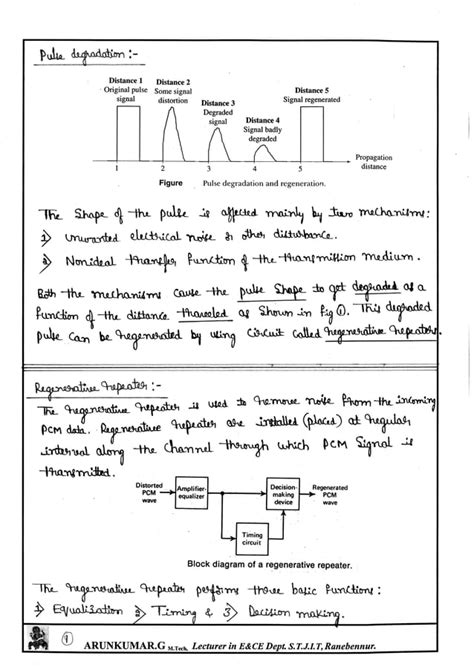 Pulse degradation :-
Distance 1
Original pulse
signal
Distance 2
Some signal
distortion
Distance 3
Degraded
signal
Distance 4
Signal badly
degraded
Distance 5
Signal regenerated
1 2 3 4 5
Propagation
distance
Figure Pulse degradation and regeneration.
The shape of the pulse is affected mainly by two mechanisms:
1) Unwanted electrical noise & other disturbance.
2) Nonideal transfer function of the transmission medium.
Both the mechanisms cause the pulse shape to get degraded as a
function of the distance traveled as shown in fig ①. This degraded
pulse can be regenerated by using circuit called regenerative repeaters.
Regenerative repeater :-
The regenerative repeater is used to remove noise from the incoming
PCM data. Regenerative repeater are installed (placed) at regular
interval along the channel through which PCM signal is
transmitted.
Distorted
PCM
wave
Amplifier-
equalizer
Decision-
making
device
Regenerated
PCM
wave
Timing
circuit
Block diagram of a regenerative repeater.
The regenerative repeater performs three basic functions :
1) Equalization 2) Timing & 3) Decision making.
① ARUNKUMAR.G M.Tech, Lecturer in E&CE Dept. S.T.J.I.T, Ranebennur.